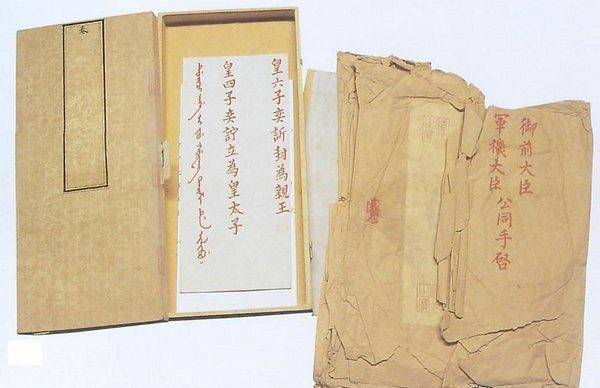 奏
皇六子奕訢封為親王
皇四子奕詝立為皇太子
御前大臣
軍機大臣 公同手啓